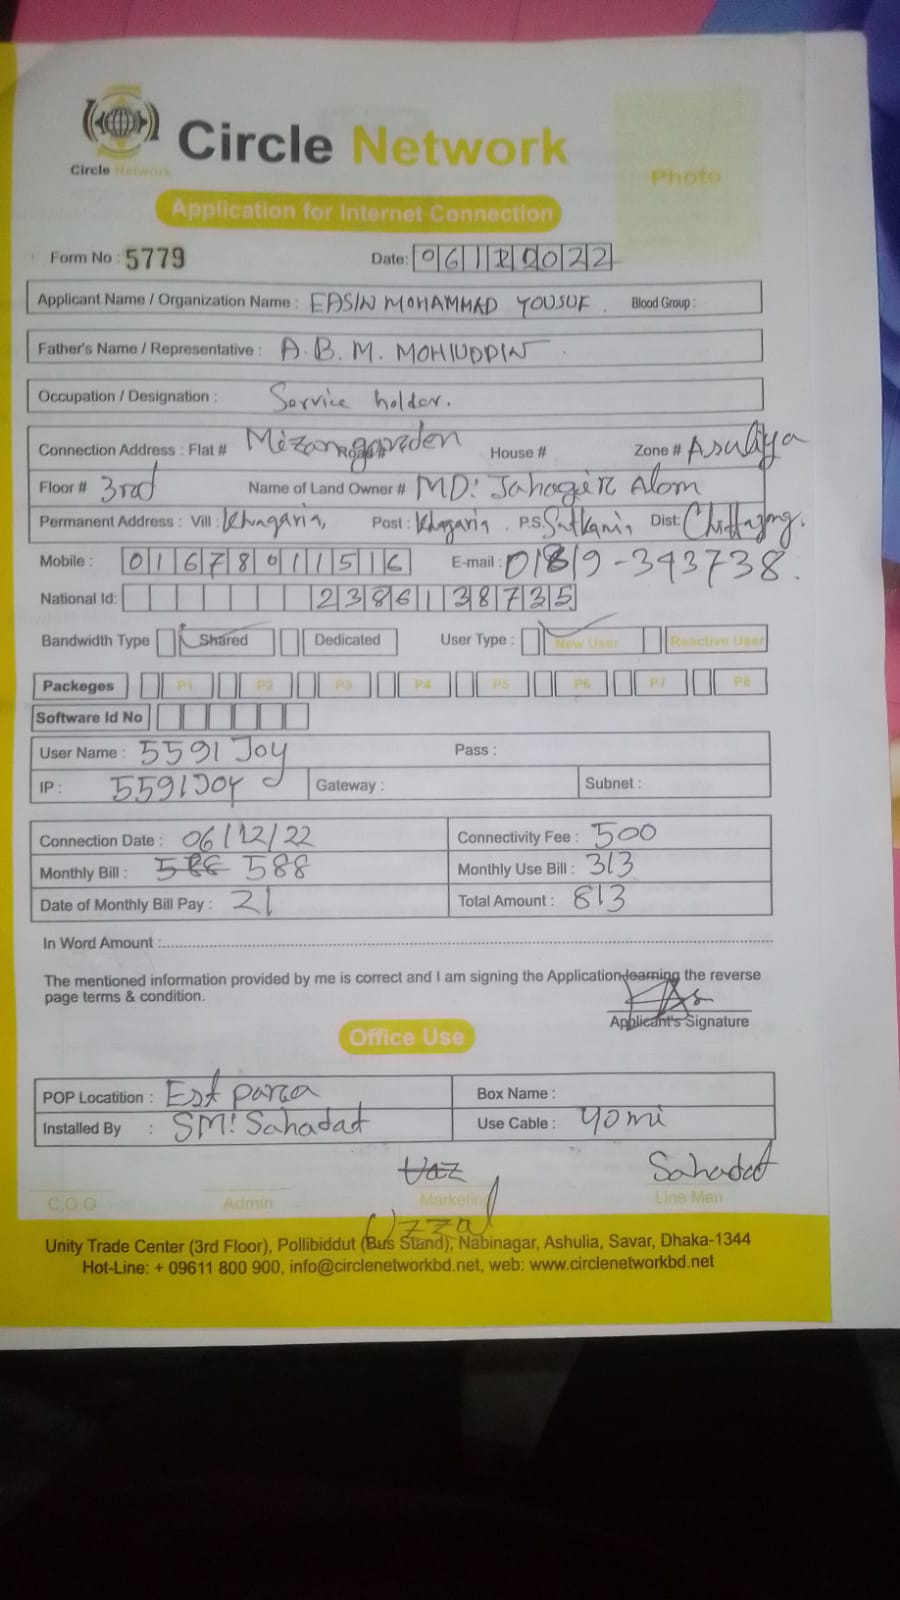 Circle Network
Circle Network
Photo
Application for Internet Connection
Form No : 5779 Date: 06122022
Applicant Name / Organization Name : EASIN MOHAMMAD YOUSUF. Blood Group :
Father's Name / Representative : A.B.M. MOHIUDDIN
Occupation / Designation : Service holder.
Connection Address : Flat # Mizan garden Road # House # Zone # Asuliya
Floor # 3rd Name of Land Owner # MD: Jahagir Alom
Permanent Address : Vill : Khagaria, Post : Khagaria. P.S. Satkania Dist: Chittagong.
Mobile : 01678011516 E-mail : 01819-343738.
National Id: 2386138735
Bandwidth Type Shared Dedicated User Type : New User Reactive User
Packeges P1 P2 P3 P4 P5 P6 P7 P8
Software Id No
User Name : 5591 Joy Pass :
IP : 5591 Joy Gateway : Subnet :
Connection Date : 06/12/22 Connectivity Fee : 500
Monthly Bill : 588 Monthly Use Bill : 313
Date of Monthly Bill Pay : 21 Total Amount : 813
In Word Amount :
The mentioned information provided by me is correct and I am signing the Application learning the reverse
page terms & condition.
Applicant's Signature
Office Use
POP Locatition : Est para Box Name :
Installed By : SM: Sahadat Use Cable : 40 mi
Sahadat
C.O.O Admin Marketing Line Man
Unity Trade Center (3rd Floor), Pollibiddut (Bus Stand), Nabinagar, Ashulia, Savar, Dhaka-1344
Hot-Line: + 09611 800 900, info@circlenetworkbd.net, web: www.circlenetworkbd.net